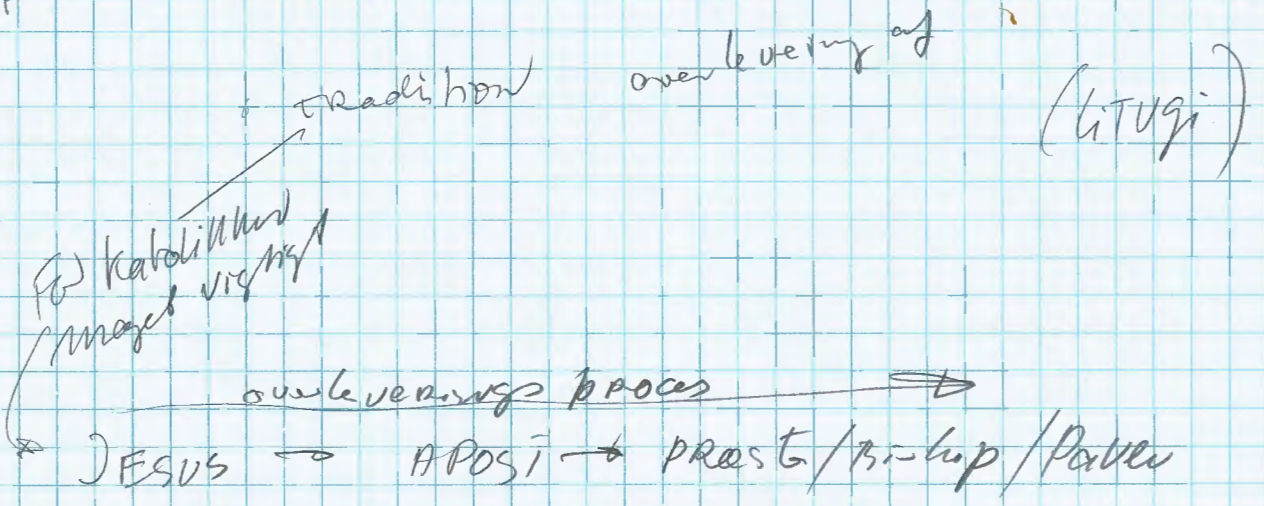 tradition overlevering af
(liTUgi)
for katolikker
meget vigtigt
overleverings proces
JESUS → APOST → PRæST/Biskop/Paven